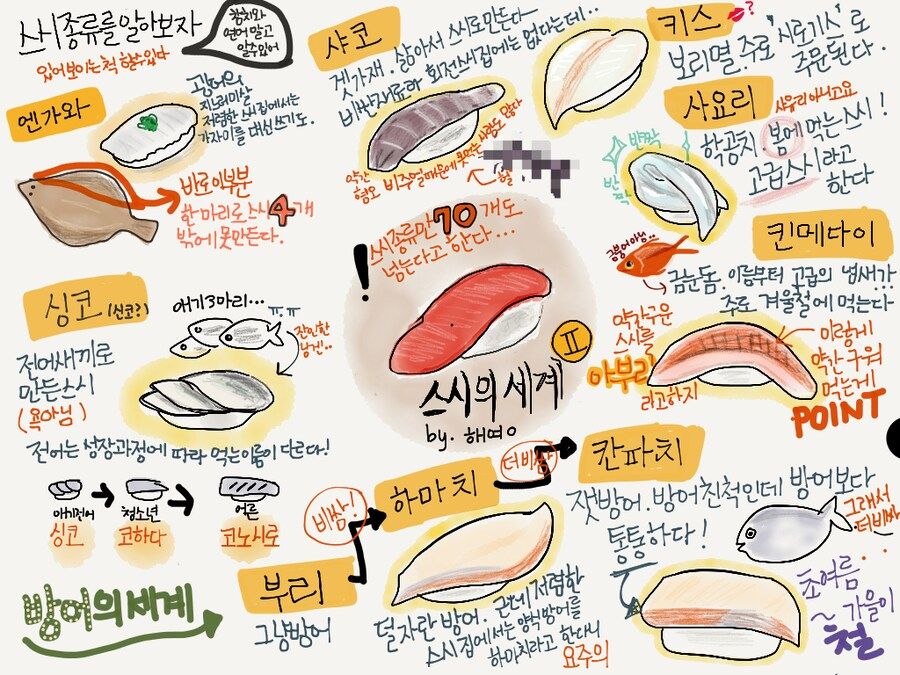 스시종류를 알아보자
있어보이는척 할수있다
참치와
연어 말고
알수있어
엔가와
광어의
지느러미살
저렴한 스시집에서는
가자미를 대신 쓰기도.
바로 이부분
한마리로 스시 4개
밖에 못만든다.
샤코
갯가재. 삶아서 스시로만든다
비싼재료라 회전스시집에는 없다는데..
약간
혐오 비주얼때문에 못먹는사람도 많다
헐
키스 ?
보리멸. 주로 '시로기스'로
주문된다.
사요리
사유리 아니고요
학공치. 봄에 먹는 스시!
고급스시라고
한다
반짝
반짝
스시종류만 70개도
넘는다고 한다...
!
스시의 세계 II
by. 해여o
킨메다이
금붕어아님..
금눈돔. 이름부터 고급의 냄새가...
주로 겨울철에 먹는다
약간구운
스시를
아부리
라고하지
이렇게
약간 구워
먹는게
POINT
싱코 (신코?)
애기3마리...
ㅠㅠ
잔인한
닝겐..
전어새끼로
만든스시
(욕아님)
전어는 성장과정에 따라 먹는이름이 다르다!
아기전어
싱코
청소년
코하다
어른
코노시로
방어의세계
부리
그냥방어
비쌈!
하마치
덜자란 방어. 근데 저렴한
스시집에서는 양식방어를
하마치라고 한다니
요주의
더비쌈
칸파치
잿방어. 방어친척인데 방어보다
통통하다!
그래서
더비싸..
초여름
~가을이
철